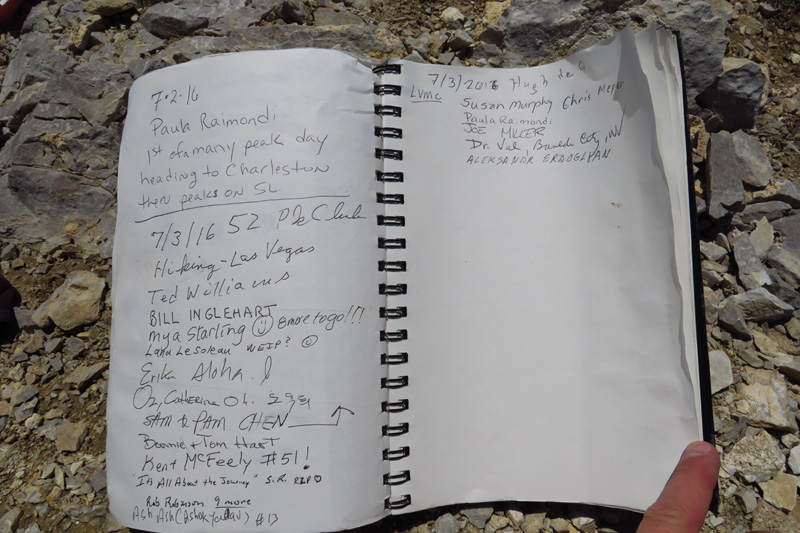 7·2·16
Paula Raimondi
1st of a many peak day
heading to Charleston
then peaks on SL
7/3/16 52 Pk Club
Hiking-Las Vegas
Ted Williams
BILL INGLEHART
mya Starling 8 more to go!!!
Lana Lesoleau WEIP?
Erika Aloha!
Oz, Catherina Oh.
SAM & PAM CHEN
Bonnie + Tom Hart
Kent McFeely #51!
"It's All About the Journey" S.R. R.I.P ♡
Rob Robinson 9 more
Ash, Ash (Ashok Yadav) #13
7/3/2016 Hugh de Q
LVMC Susan Murphy Chris Meyer
Paula Raimondi
JOE MILLER
Dr. Val, Boulder City, NV
ALEKSANDR ERDOGLYAN